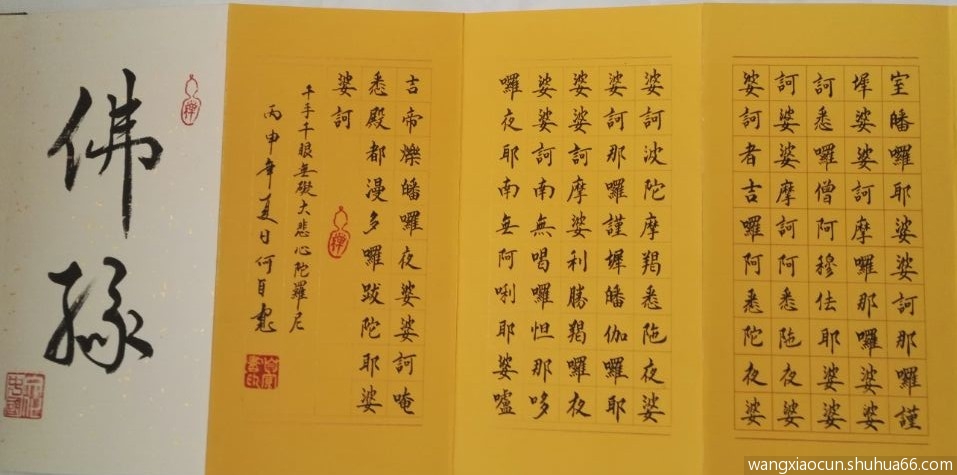 室皤囉耶娑婆訶那囉謹
墀娑婆訶摩囉那囉娑婆
訶悉囉僧阿穆佉耶娑婆
訶娑婆摩訶阿悉陁夜娑
婆訶者吉囉阿悉陀夜娑
婆訶波陀摩羯悉陁夜娑
婆訶那囉謹墀皤伽囉耶
娑婆訶摩婆利勝羯囉夜
娑婆訶南無喝囉怛那哆
囉夜耶南無阿唎耶婆嚧
吉帝爍皤囉夜娑婆訶唵
悉殿都漫多囉跋陀耶娑
婆訶
千手千眼無礙大悲心陀羅尼
丙申年夏日何自
禪
佛緣
禪
wangxiaocun.shuhua66.com